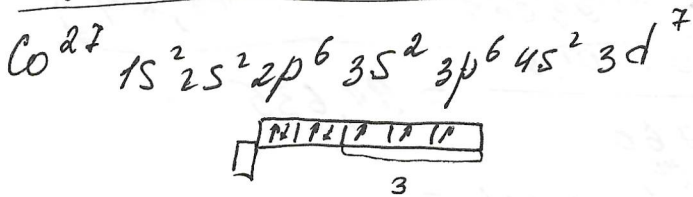 Co²⁷ 1s² 2s² 2p⁶ 3s² 3p⁶ 4s² 3d⁷
↑↓ ↑↓ ↑ ↑ ↑
3